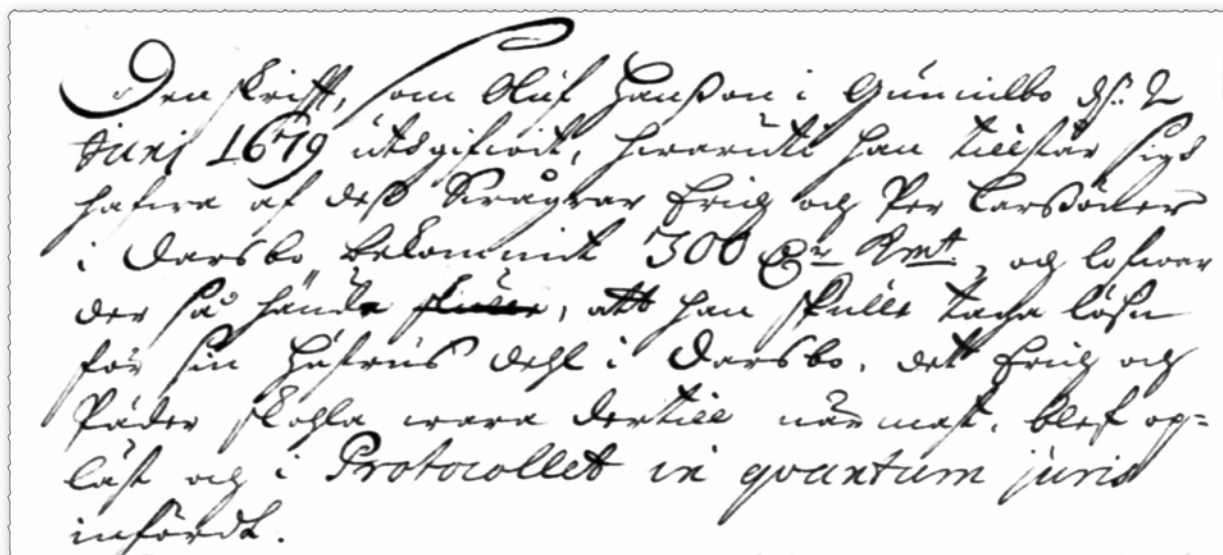 Den skrifft, som Oluf Hanßon i Gunnilbo d. 2
Junj 1679 uthgifwit, hwaruti han tillstår sigh
hafwa af deß Swågrar Erich och Per Larßöner
i Darsbo bekommit 300 D:r K:mt, och lofwar
der så hände skulle, att han skulle taga lösn
för sin hustrus dehl i Darsbo, det Erich och
Päder skohla wara dertill närmast, blef op-
läst och i Protocollet in qvantum juris
infördt.